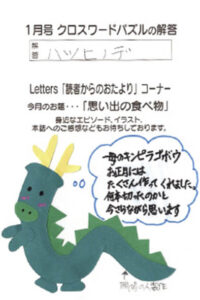 1月号 クロスワードパズルの解答
解答 ハツヒノデ
Letters「読者からのおたより」コーナー
今月のお題・・・「思い出の食べ物」
身近なエピソード、イラスト、
本誌へのご感想などもお待ちしております。
母のキンピラゴボウ
お正月には
たくさん作ってくれました。
何本切ったのかと
今さらながら思います